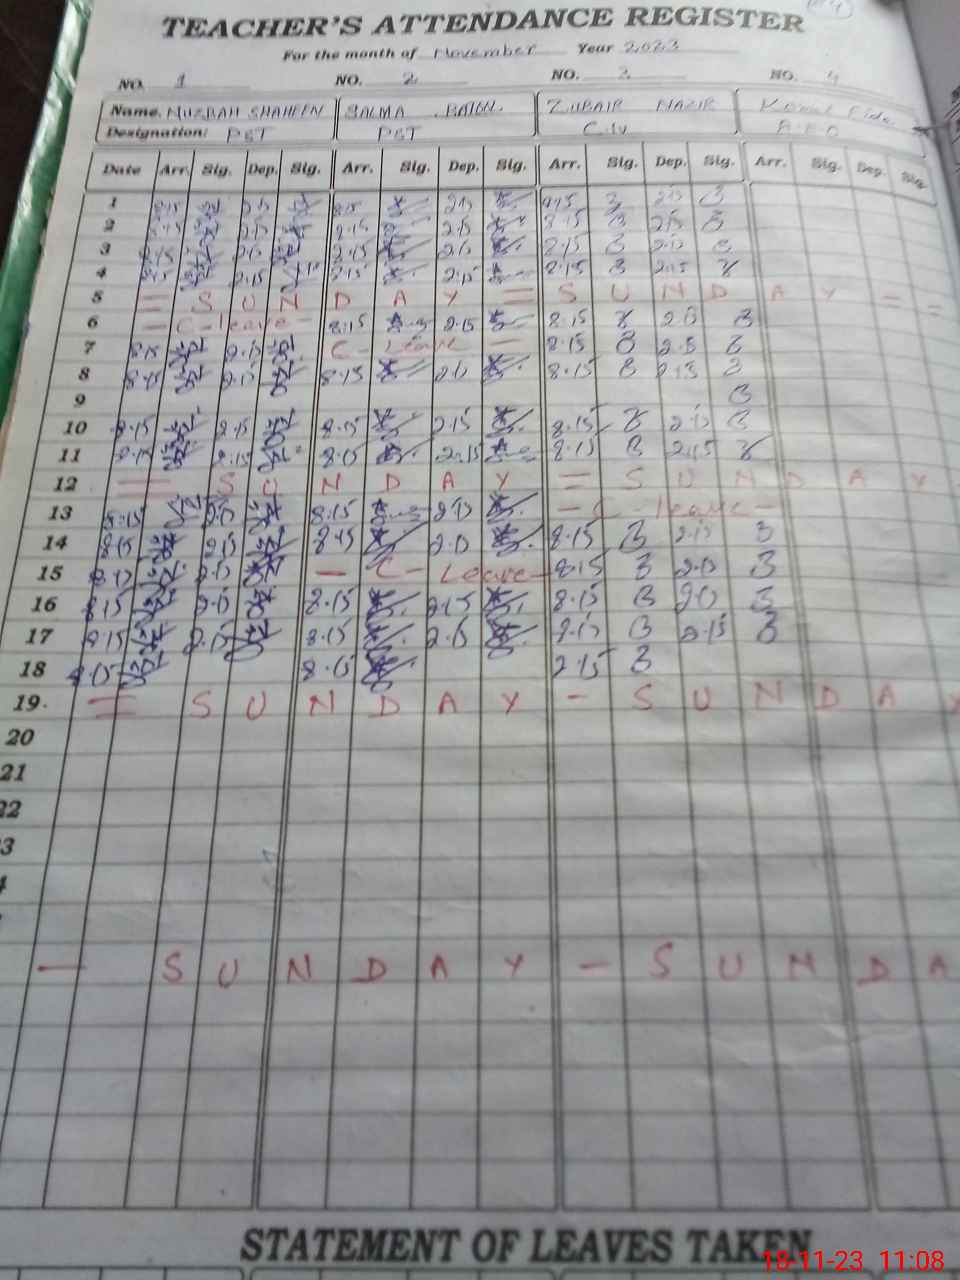 TEACHER'S ATTENDANCE REGISTER
For the month of November Year 2023
NO. 1 NO. 2 NO. 3 NO. 4
Name. NUZBAH SHAHEEN SALMA BATOOL ZUBAIR NAZIR
Designation: PST PST C.IV A.E.O
Date Arr. Sig. Dep. Sig. Arr. Sig. Dep. Sig. Arr. Sig. Dep. Sig. Arr. Sig. Dep. Sig.
1 8.15 2.15 8.15 2.15 8.15 2.15
2 8.15 2.15 8.15 2.15 8.15 2.15
3 8.15 2.15 8.15 2.15 8.15 2.15
4 8.15 2.15 8.15 2.15 8.15 2.15
5 = S U N D A Y = S U N D A Y =
6 - C-leave - 8.15 2.15 8.15 2.15
7 8.15 2.15 C-Leave - 8.15 2.15
8 8.15 2.15 8.15 2.15 8.15 2.15
9
10 8.15 2.15 8.15 2.15 8.15 2.15
11 8.15 2.15 8.15 2.15 8.15 2.15
12 = S U N D A Y = S U N D A Y
13 8.15 2.15 8.15 2.15 - C-leave -
14 8.15 2.15 8.15 2.15 8.15 2.15
15 8.15 2.15 - C-Leave - 8.15 2.15
16 8.15 2.15 8.15 2.15 8.15 2.15
17 8.15 2.15 8.15 2.15 8.15 2.15
18 8.15 8.15 2.15
19. = S U N D A Y - S U N D A Y
20
21
22
3
4
- S U N D A Y - S U N D A
STATEMENT OF LEAVES TAKEN
18-11-23 11:08